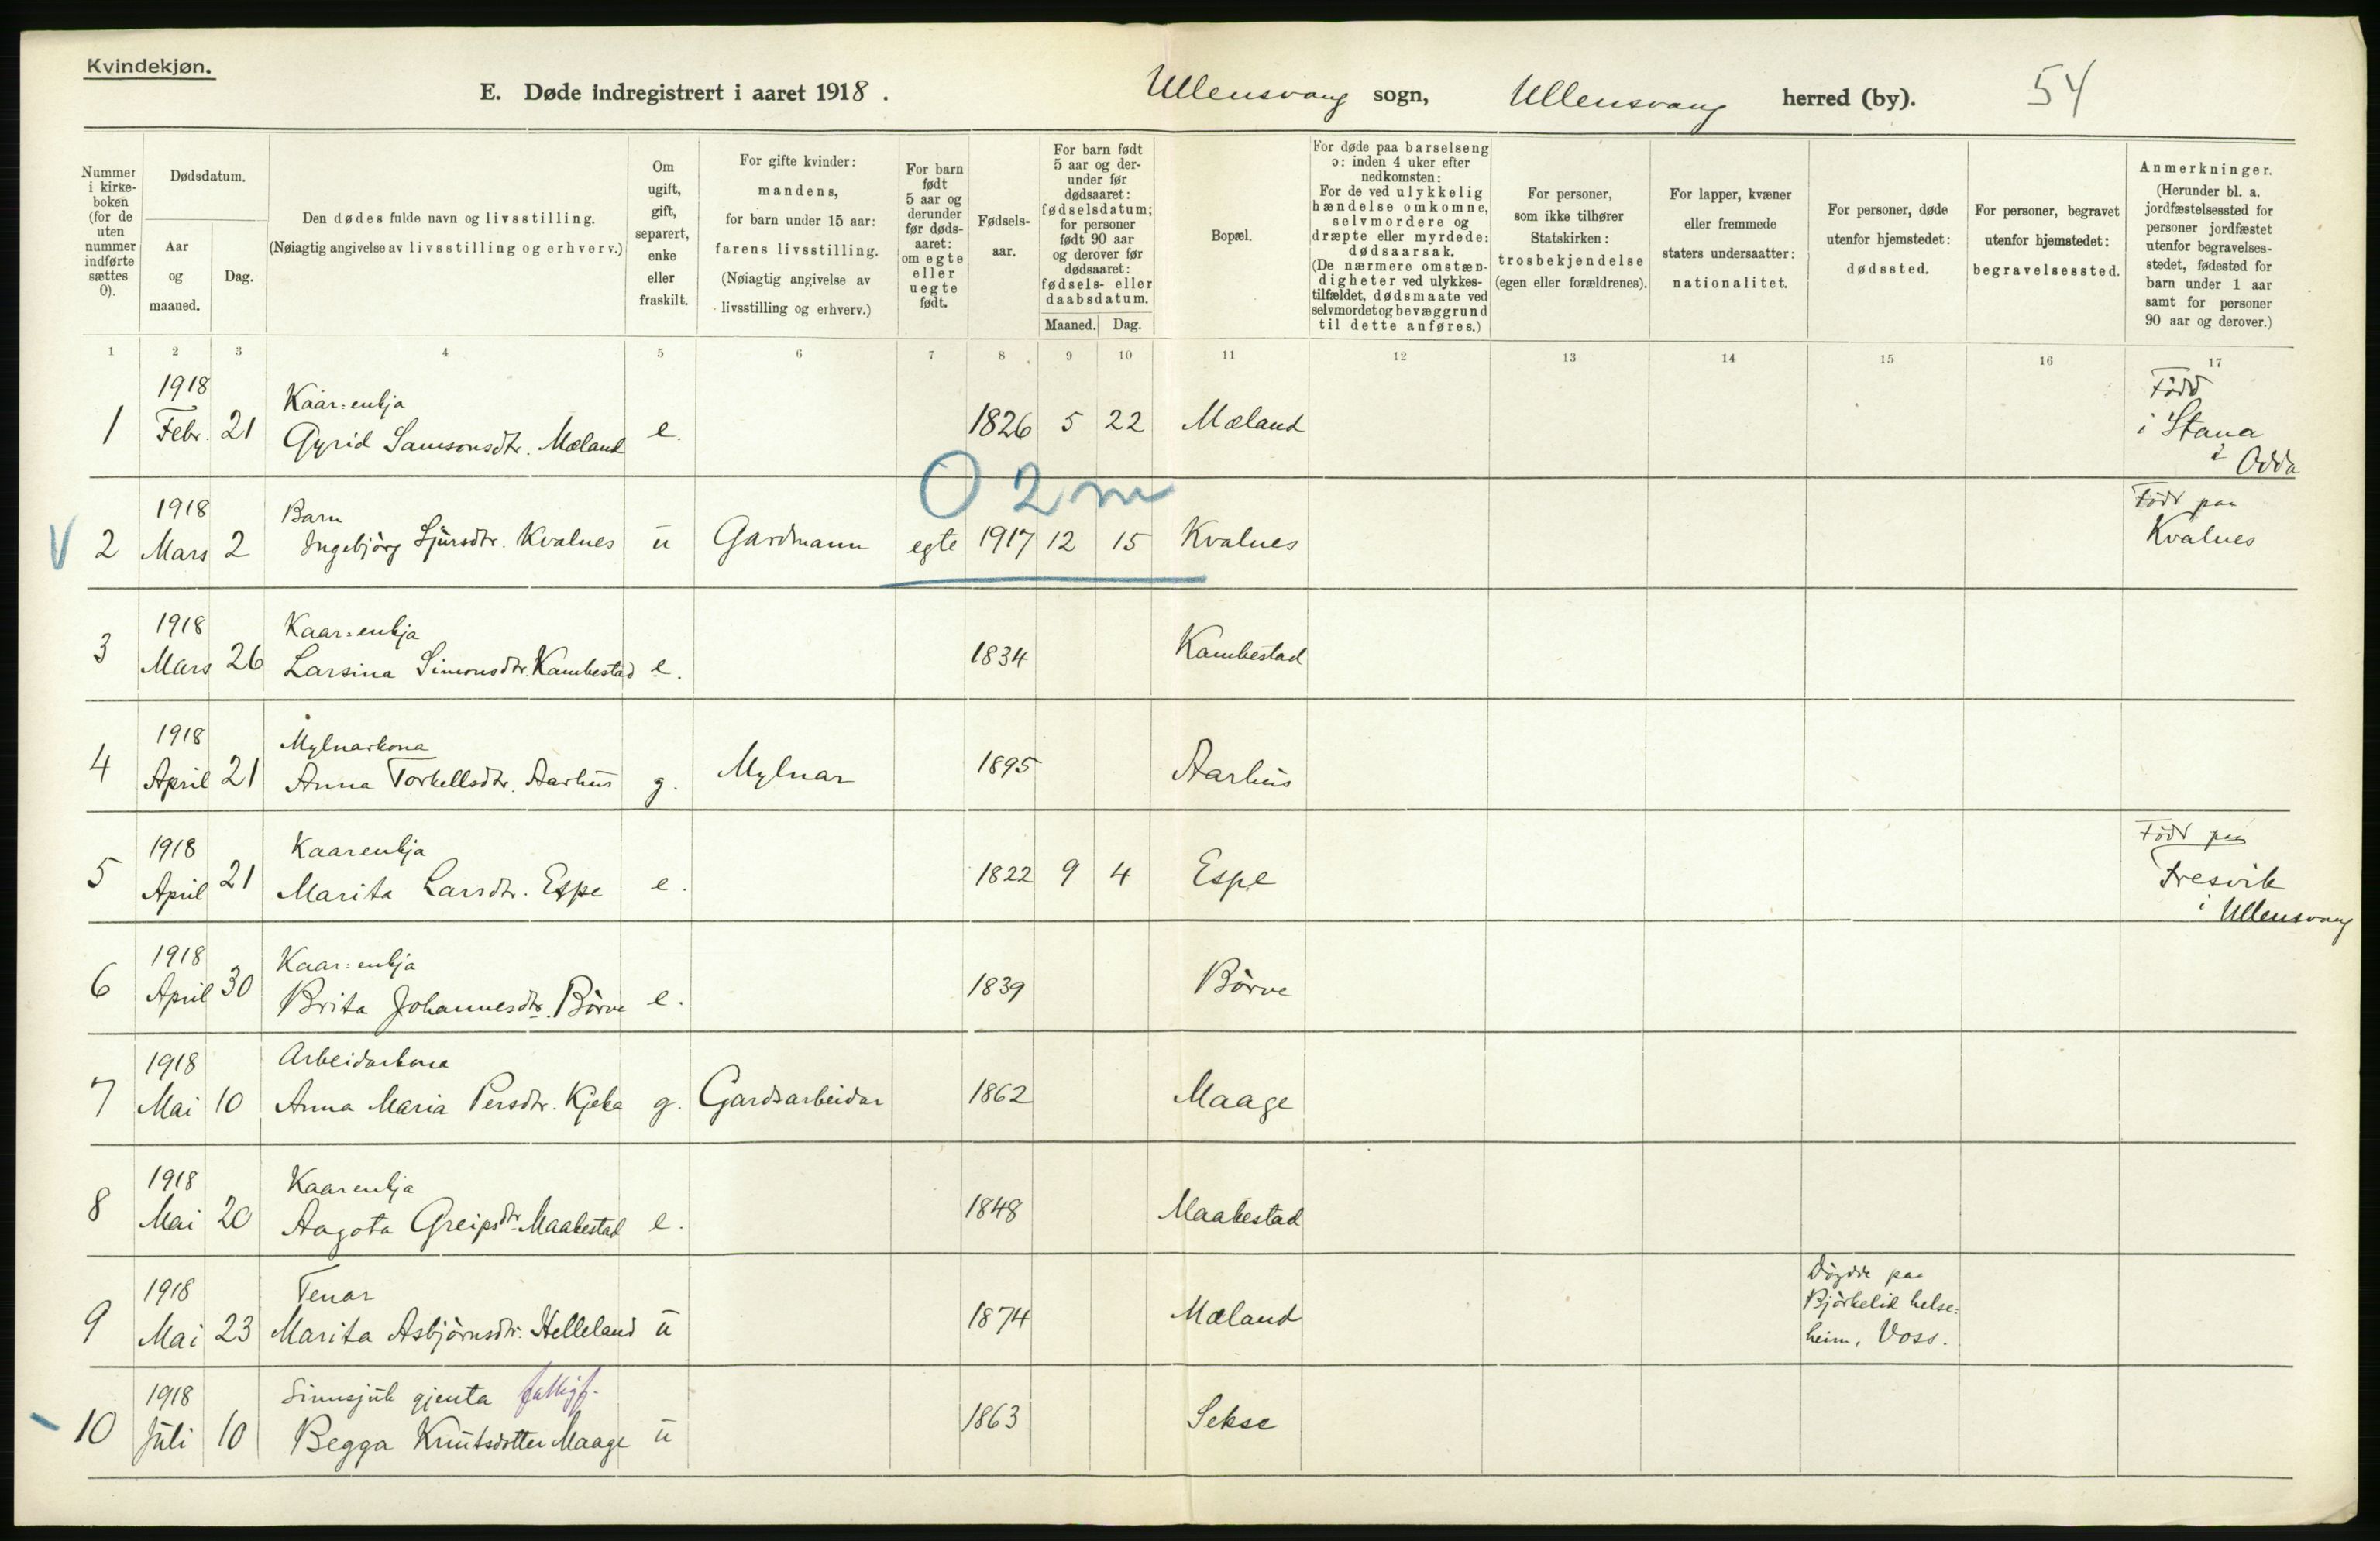 Kvindekjøn.
E. Døde indregistrert i aaret 1918. Ullensvang sogn, Ullensvang herred (by). 54
Nummer
i kirke-
boken
(for de
uten
nummer
indførte
sættes
0).
Dødsdatum.
Aar
og
maaned.
Dag.
Den dødes fulde navn og livsstilling.
(Nøiagtig angivelse av livsstilling og erhverv.)
Om
ugift,
gift,
separert,
enke
eller
fraskilt.
For gifte kvinder:
mandens,
for barn under 15 aar:
farens livsstilling.
(Nøiagtig angivelse av
livsstilling og erhverv.)
For barn
født
5 aar og
derunder
før døds-
aaret:
om egte
eller
uegte
født.
Fødsels-
aar.
For barn født
5 aar og der-
under før
dødsaaret:
fødselsdatum;
for personer
født 90 aar
og derover før
dødsaaret:
fødsels- eller
daabsdatum.
Maaned. Dag.
Bopæl.
For døde paa barselseng
ɔ: inden 4 uker efter
nedkomsten:
For de ved ulykkelig
hændelse omkomne,
selvmordere og
dræpte eller myrdede:
dødsaarsak.
(De nærmere omstæn-
digheter ved ulykkes-
tilfældet, dødsmaate ved
selvmordet og bevæggrund
til dette anføres.)
For personer,
som ikke tilhører
Statskirken:
trosbekjendelse
(egen eller forældrenes).
For lapper, kvæner
eller fremmede
staters undersaatter:
nationalitet.
For personer, døde
utenfor hjemstedet:
dødssted.
For personer, begravet
utenfor hjemstedet:
begravelsessted.
Anmerkninger.
(Herunder bl. a.
jordfæstelsessted for
personer jordfæstet
utenfor begravelses-
stedet, fødested for
barn under 1 aar
samt for personer
90 aar og derover.)
1 2 3 4 5 6 7 8 9 10 11 12 13 14 15 16 17
1918 Kaar=enkja Född
1 Febr. 21 Gyrid Samsonsdtr. Mæland e. 1826 5 22 Mæland i Stana
i Odda
O 2 m
1918 Barn Född paa
V 2 Mars 2 Ingebjörg Sjursdtr. Kvalnes u Gardmann egte 1917 12 15 Kvalnes Kvalnes
1918 Kaar=enkja
3 Mars 26 Larsina Simonsdtr. Kambestad e. 1834 Kambestad
1918 Mylnarkona
4 April 21 Anna Torkellsdtr. Aarhus g. Mylnar 1895 Aarhus
1918 Kaarenkja Född paa
5 April 21 Marita Larsdtr. Espe e. 1822 9 4 Espe Fresvik
i Ullensvang
1918 Kaar=enkja
6 April 30 Brita Johannesdtr. Börve e. 1839 Börve
1918 Arbeidarkona
7 Mai 10 Anna Maria Persdtr. Kjeka g. Gardsarbeidar 1862 Maage
1918 Kaarenkja
8 Mai 20 Aagota Greipsdtr. Maakestad e. 1848 Maakestad
1918 Tenar Döydde paa
9 Mai 23 Marita Asbjörnsdtr. Helleland u 1874 Mæland Björkelid helse=
heim, Voss.
1918 Sinnsjuk gjenta
10 Juli 10 Begga Knutsdotter Maage u 1863 Sekse